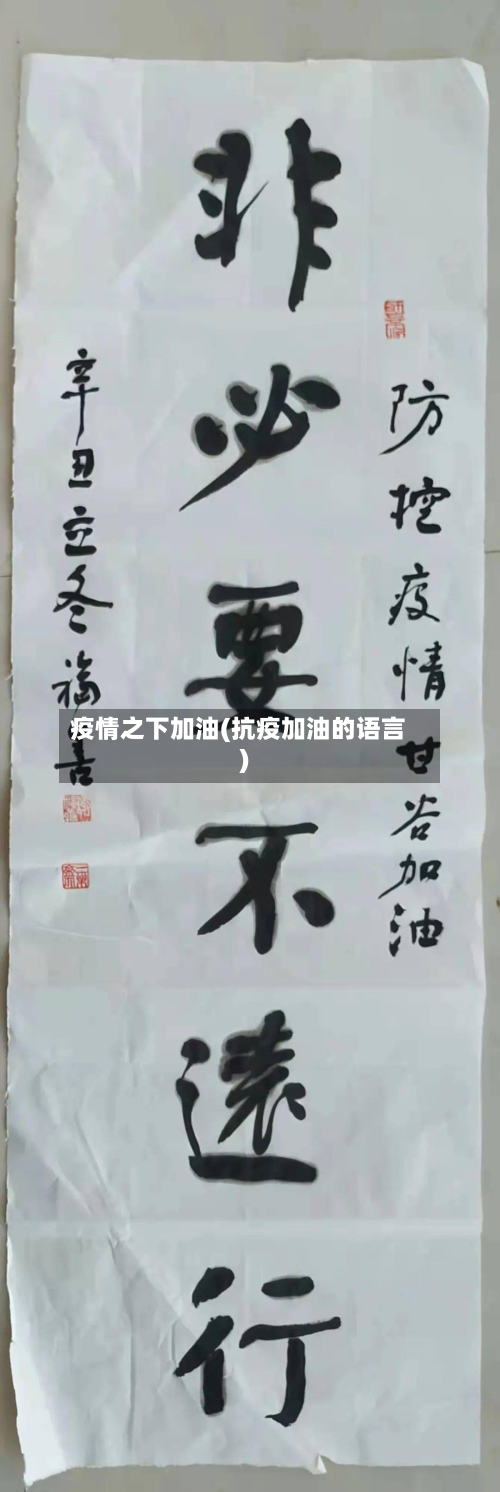 防控疫情甘谷加油
非必要不遠行
辛丑立冬福善
疫情之下加油(抗疫加油的语言
)